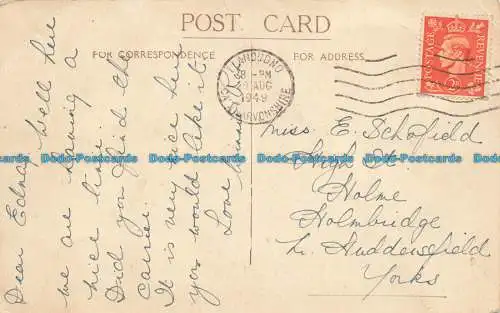 POST CARD
FOR CORRESPONDENCE
FOR ADDRESS.
LLANDUDNO
8 - PM
AUG
1949
CAERNARVONSHIRE
POSTAGE
REVENUE
Dear Edna,
well here
we are having a
nice time.
Did you find the
It is very nice here
you would like it.
Love
Miss E. Schofield
High St.
Holme
Holmbridge
Nr. Huddersfield
Yorks
Dodo-Postcards
Dodo-Postcards
Dodo-Postcards
Dodo-Postcards
Dodo-Postcards
Dodo-Postcards